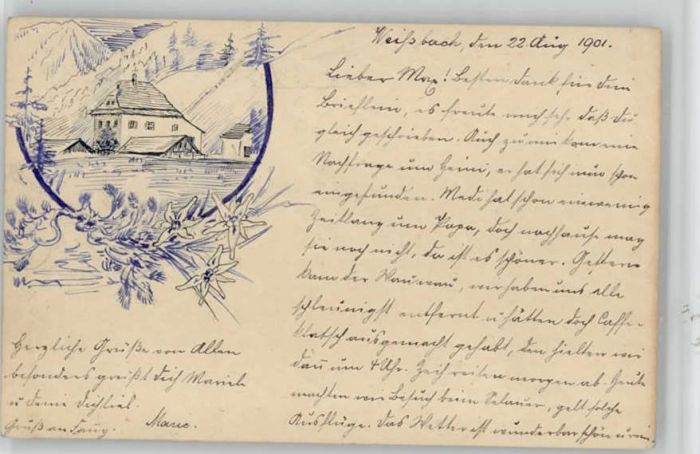 Weißbach, den 22 Aug 1901.
Lieber Max! Besten Dank für dein
Brieflein, es freute mich sehr daß du
gleich geschrieben. Auch zu mir kam eine
Nachfrage um Heini, er hat sich nun schon
eingefunden. Medi hat schon ein wenig
Zeitlang um Papa, doch nachhause mag
sie noch nicht, da ist es schöner. Gestern
kam der Wauwau, wir haben uns alle
schleunigst entfernt u hätten doch Caffe-
klatsch ausgemacht gehabt, den hielten wir
dann um 4 Uhr. reisen morgen ab. Heute
machten wir Besuch beim, gelt solche
Ausflüge. Das Wetter ist wunderbar schön u
Herzliche Grüße von Allen
besonders grüßt dich Mariele
u deine dichlieb.
Gruß an Marie.